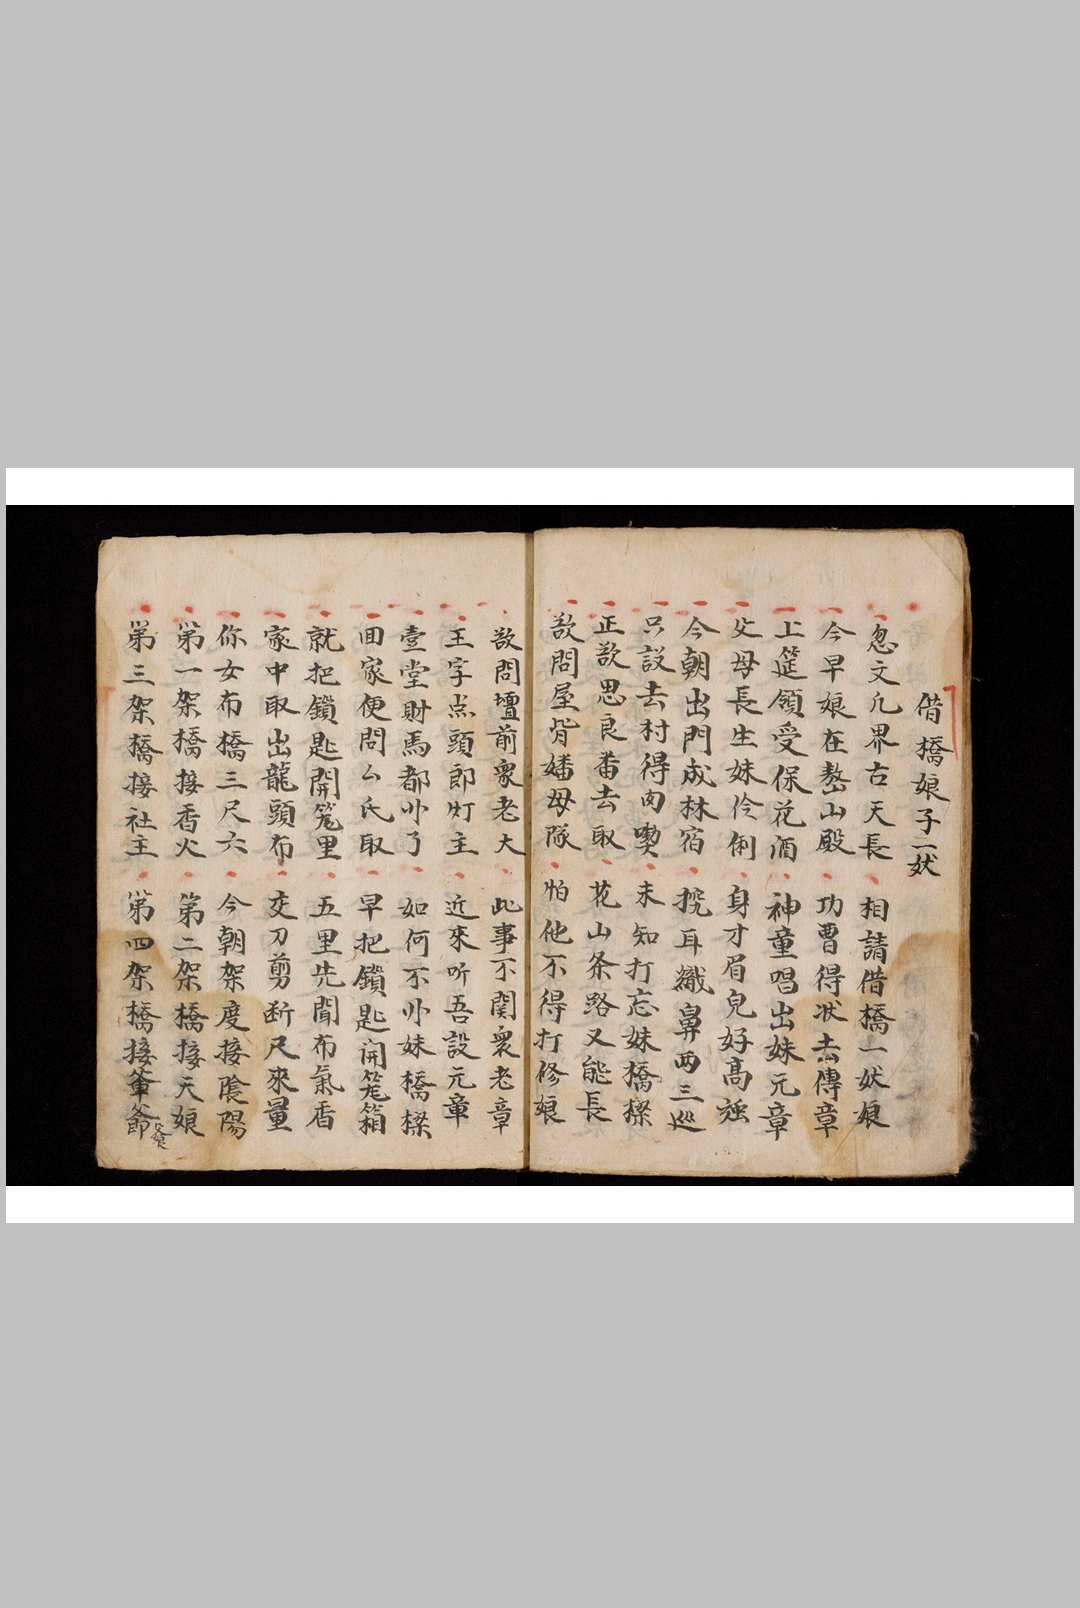 借橋娘子二妖
忽文凢界古天長　相請借橋一妖娘
今早娘在嶅山殿　功曹得状去傳章
上筵領受保花酒　神童唱出妹元章
父母長生妹伶俐　身才眉皃好高強
今朝出門成林宿　挩耳纖鼻两三巡
只説去村得肉喫　未知打忘妹橋樑
正欲思良畨去取　花山条路又能長
欲問屋背嬏母隊　怕他不得打修娘
欲問壇前衆老大　此事不関衆老章
王字点頭郎灯主　近來听吾設元章
壹堂財馬都卟了　如何不卟妹橋樑
回家便問厶氏取　早把鎖匙開笼箱
就把鎖匙開笼里　五里先聞布氣香
家中取出龍頭布　交刀剪断尺來量
你女布橋三尺六　今朝架度接陰陽
第一架橋接香火　第二架橋接天娘
第三架橋接社主　第四架橋接爺